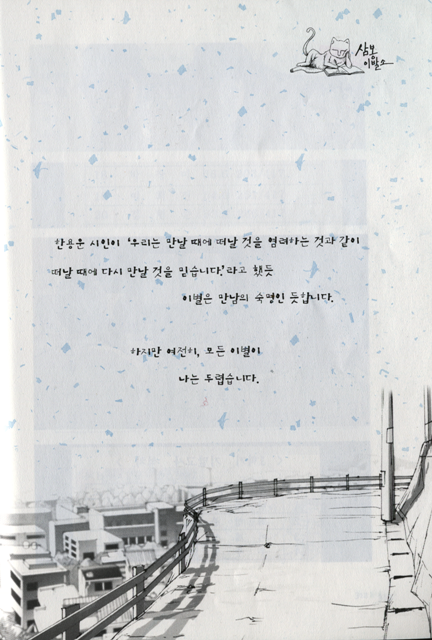 삼봉
이발소
한용운 시인이 '우리는 만날 때에 떠날 것을 염려하는 것과 같이
떠날 때에 다시 만날 것을 믿습니다.'라고 했듯
이별은 만남의 숙명인 듯합니다.
하지만 여전히, 모든 이별이
나는 두렵습니다.